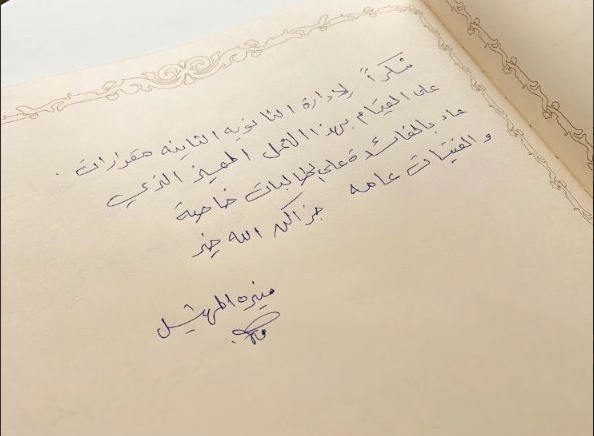 شكراً لإدارة الثانوية الثانية مقررات .
على القيام بهذا العمل المميز الذي
عاد بالفائدة على الطالبات خاصة
والفتيات عامه جزاكن الله خير
منيره المهشيل